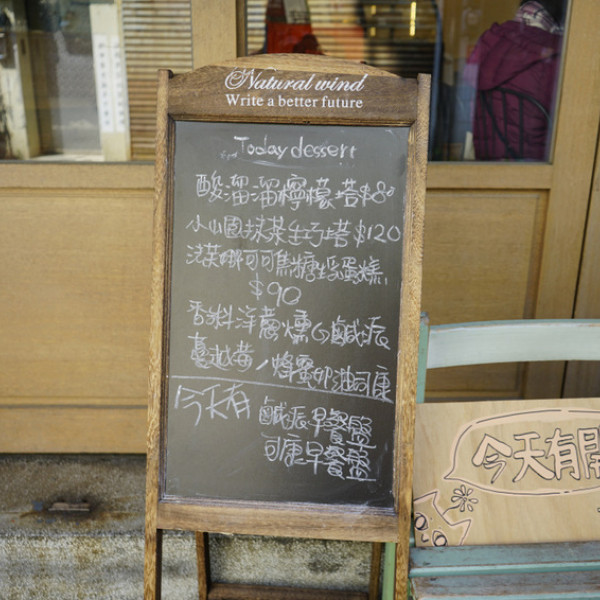 Natural wind
Write a better future
Today dessert
酸溜溜檸檬塔$80
小山園抹茶生巧塔$120
法芙娜可可焦糖蜂蜜蛋糕
$90
香料洋蔥燻G鹹派
蔓越莓/蜂蜜奶油司康
今天有 鹹派早餐盤
司康早餐盤
今天有開